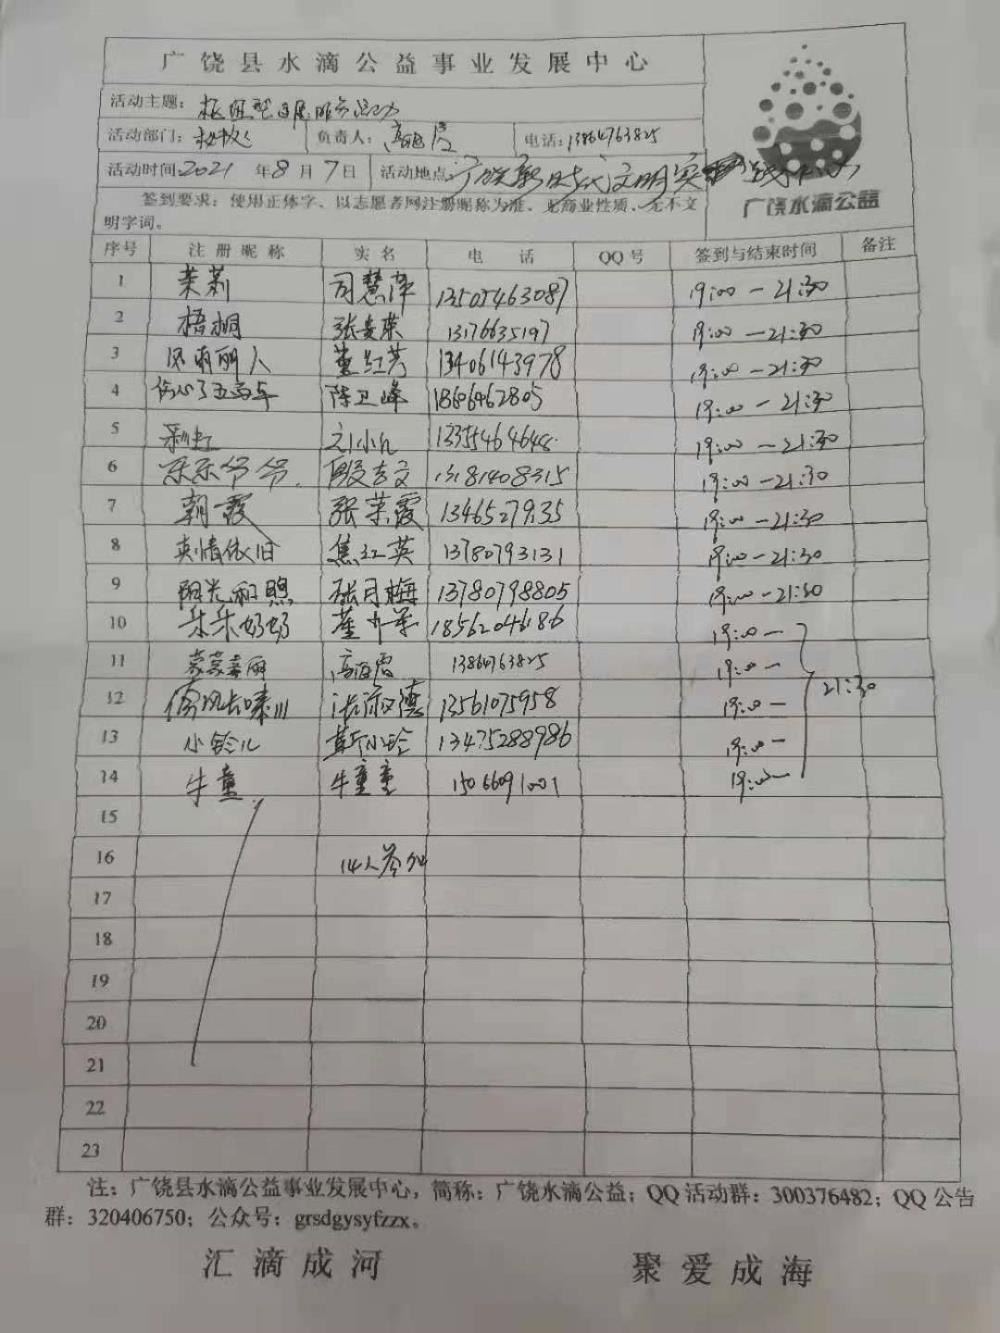 广饶县水滴公益事业发展中心
活动主题：
活动部门： 负责人： 电话：13864763825
活动时间 2021 年 8 月 7 日 活动地点： 新时代文明实
广饶水滴公益
签到要求：使用正体字、以志愿者网注册昵称为准、无商业性质、无不文
明字词。
序号 注册昵称 实名 电话 QQ号 签到与结束时间 备注
1 茉莉 司慧萍 13505463087 19:00－21:30
2 梧桐 13176635197 19:00－21:30
3 丽人 董红芳 13406143978 19:00－21:30
4 陈卫峰 18606462805 19:00－21:30
5 彩虹 19:00－21:30
6 乐乐爷爷 13181408315 19:00－21:30
7 朝霞 张荣霞 1346527935 19:00－21:30
8 真情依旧 焦红英 13780793131 19:00－21:30
9 阳光和煦 张月梅 13780798805 19:00－21:30
10 朵朵奶奶 18562046186 19:00－
11 高海霞 13864763825 19:00－
21:30
12 13561075958 19:00－
13 小铃儿 靳小玲 13475288986 19:00－
14 牛童 牛童童 15066091001 19:00－
15
16 14人参加
17
18
19
20
21
22
23
注：广饶县水滴公益事业发展中心，简称：广饶水滴公益；QQ活动群：300376482；QQ公告
群：320406750；公众号：grsdgysyfzzx。
汇滴成河 聚爱成海